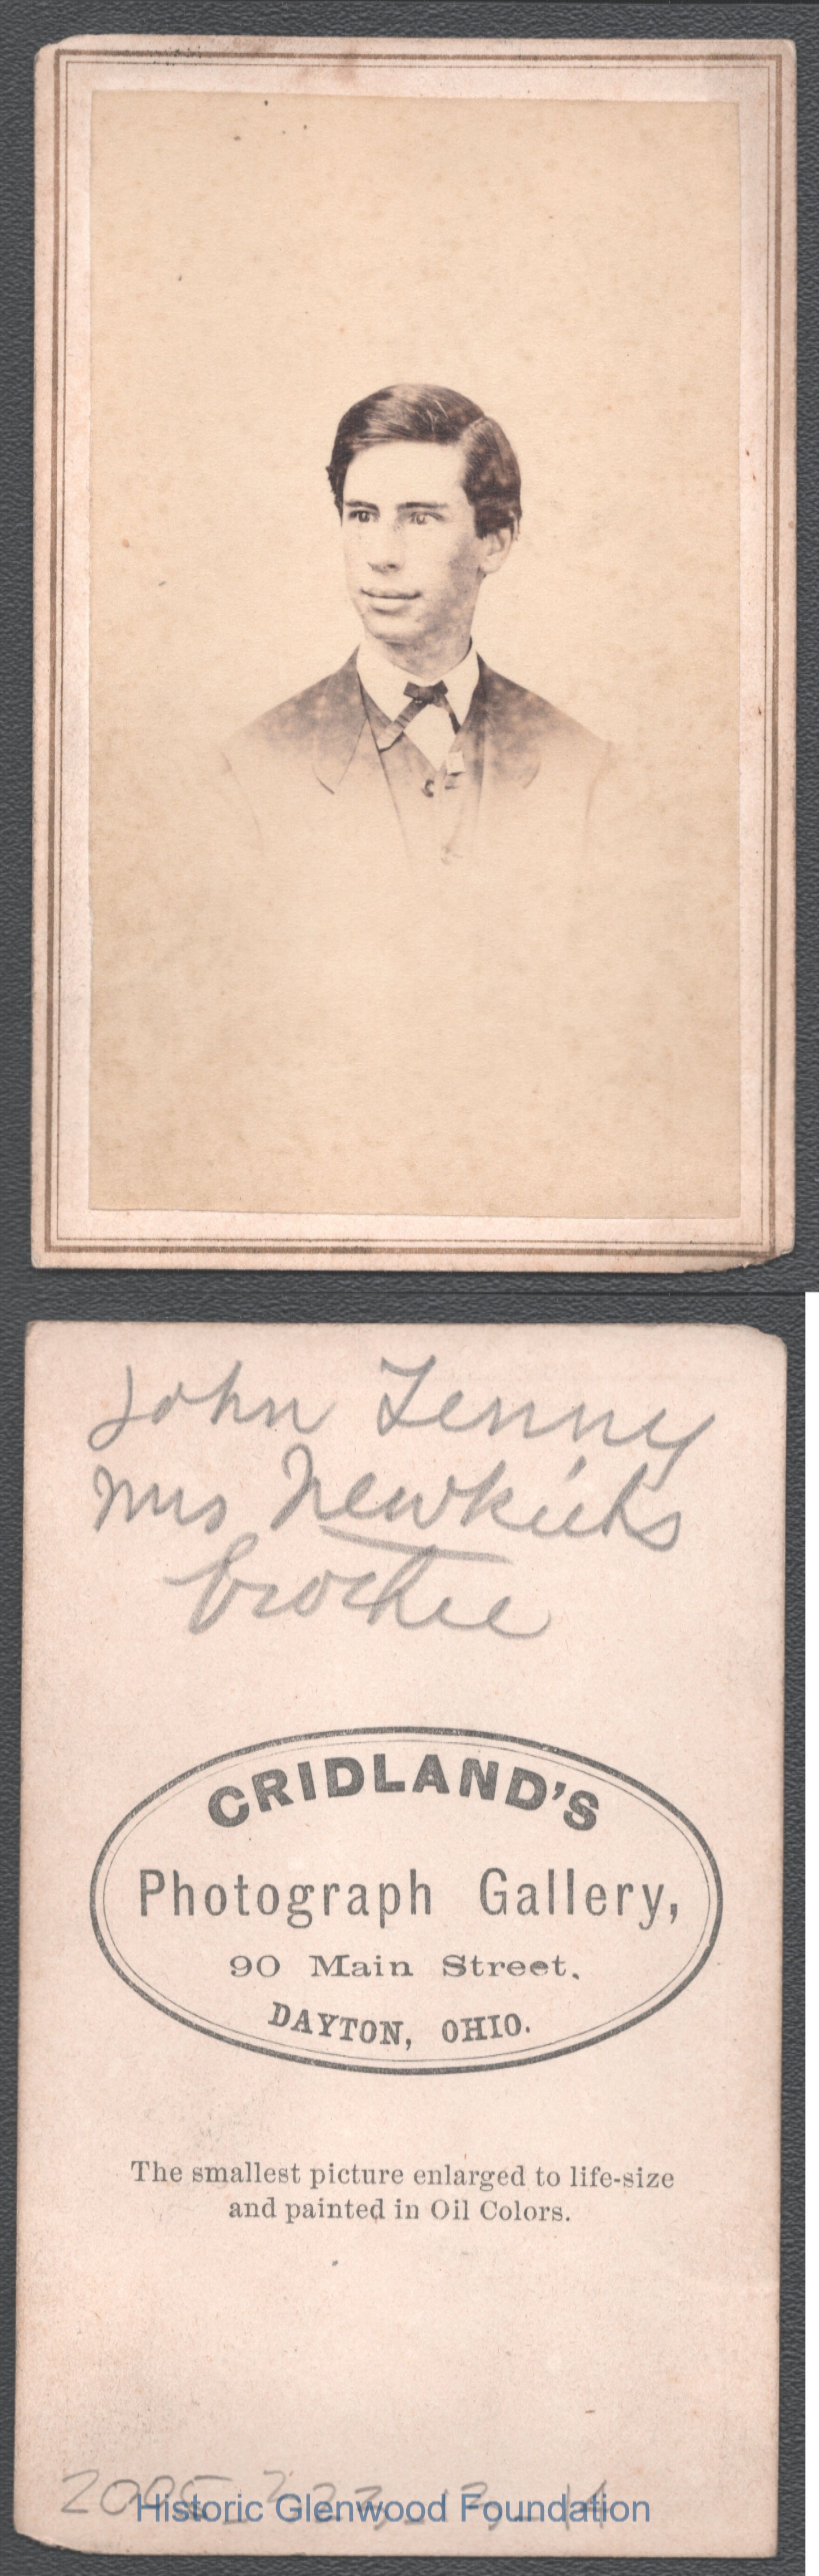 John Tenny
Mrs Newkirks
brother
CRIDLAND'S
Photograph Gallery,
90 Main Street.
DAYTON, OHIO.
The smallest picture enlarged to life-size
and painted in Oil Colors.
Historic Glenwood Foundation